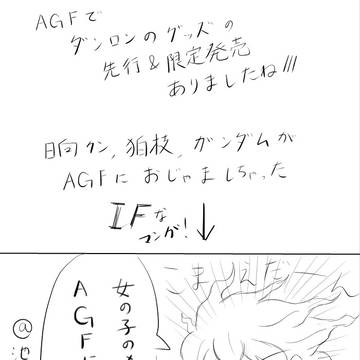 AGFで
ダンロンのグッズの
先行&限定発売
ありましたね///
日向クン,狛枝,ガンダムが
AGFにおじゃましちゃった
IFな
マンガ!
こまえだー
女の子の
AGFに
@池